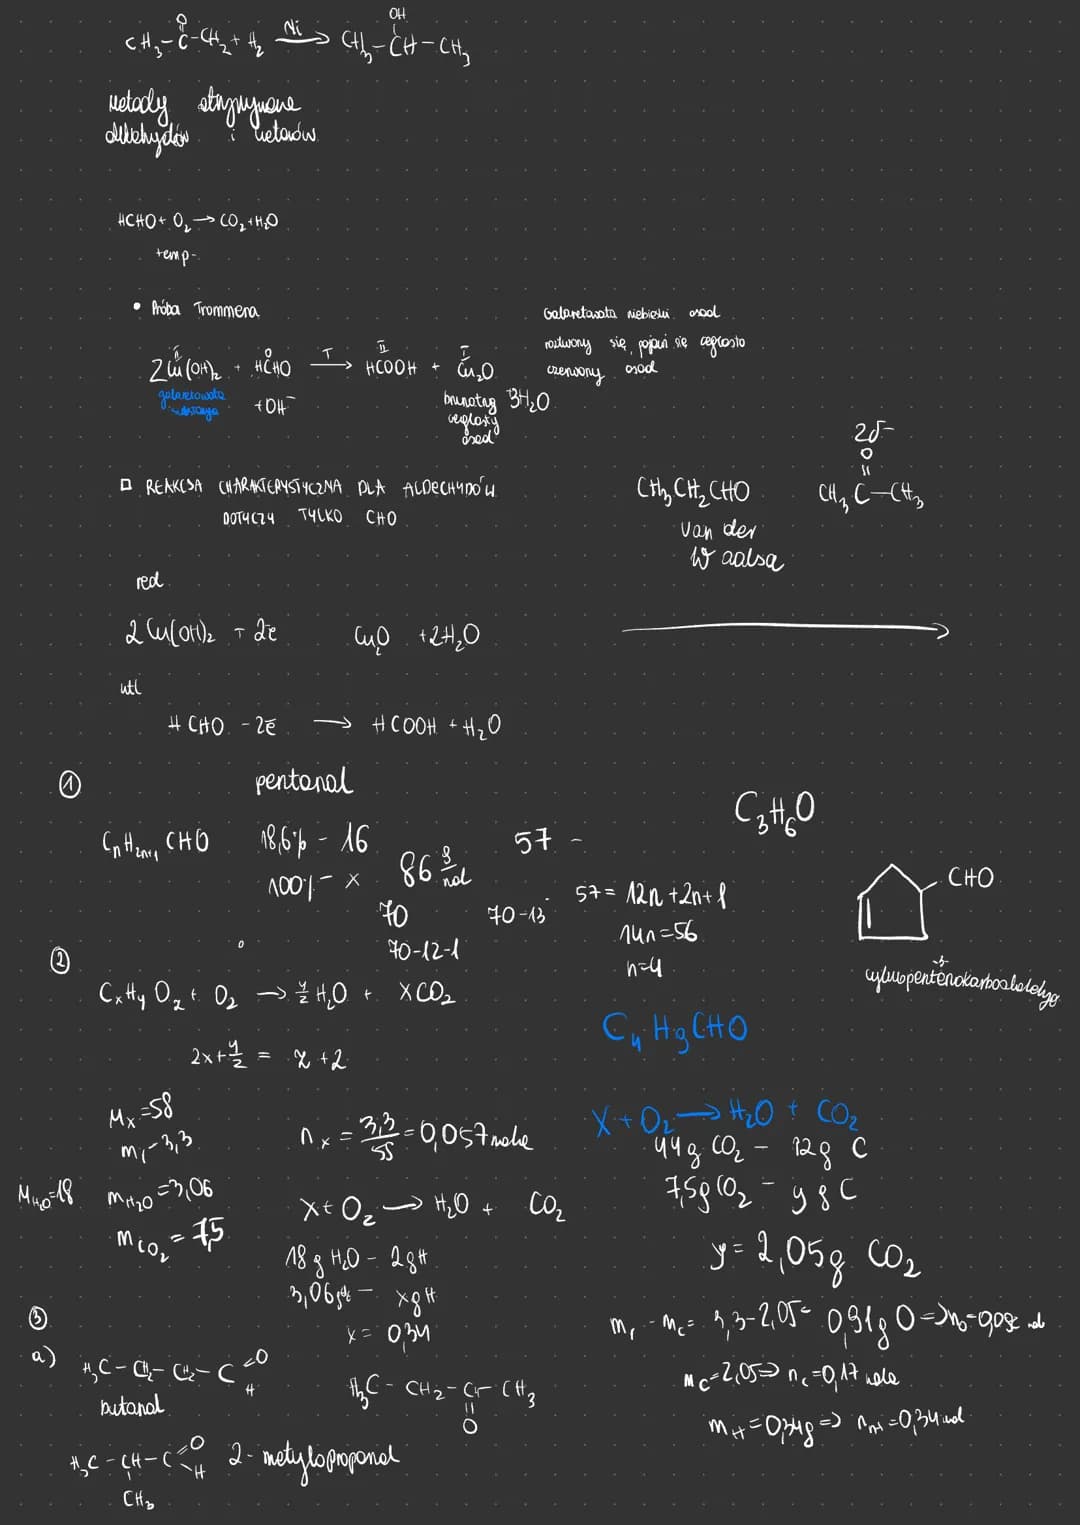 O OH
CH₃-C-CH₂ + H₂ Ni → CH₃-CH-CH₃
metody otrzymywane
aldehydów i ketonów
HCHO + O₂ → CO₂ + H₂O
temp.
• Próba Trommera
Galaretowata niebieski osad
roztwory się, pojawi się ceglasto
czerwony osad
II 0 T II I
2Cu(OH)₂ + HCHO → HCOOH + Cu₂O
galaretowata
+OH⁻
brunatny 3H₂O
ceglasty
osad
□ REAKCJA CHARAKTERYSTYCZNA DLA ALDECHYDÓW
DOTYCZY TYLKO CHO
CH₃CH₂CHO
van der
Waalsa
2δ-
O
CH₃ C-CH₃
red
2Cu(OH)₂ + 2e Cu₂O + 2H₂O
utl
HCHO - 2e → HCOOH + H₂O
① pentanal
CₙH₂ₙ₊₁CHO
18,6% - 16
100% - x
86 g/mol
70
70-12-1
57 -
70-13
57 = 12n + 2n + 1
14n = 56
n=4
C₄H₉CHO
C₃H₆O
CHO
②
CₓHyO₂ + O₂ → y/2 H₂O + XCO₂
2x + y/2 = x + 2
Mx = 58
m₁ - 3,3
M H₂O = 18
m H₂O = 3,06
m CO₂ = 7,5
nx = 3,3/58 = 0,057 mola
X + O₂ → H₂O + CO₂
18 g H₂O - 2g H
3,06 g - x g H
x = 0,34
X + O₂ → H₂O + CO₂
44g CO₂ - 12g C
7,5g CO₂ - y g C
y = 2,05g CO₂
m₁ - mc = 3,3-2,05 = 0,91g O
mc = 2,05 => nc = 0,17 mola
mH = 0,34g => nH = 0,34 mol
③
a) H₃C - CH₂ - CH₂ - C =O H
butanal
H₃C - CH₂ - C - CH₃
O
H₃C - CH - C =O H 2-metylopropanal
CH₃